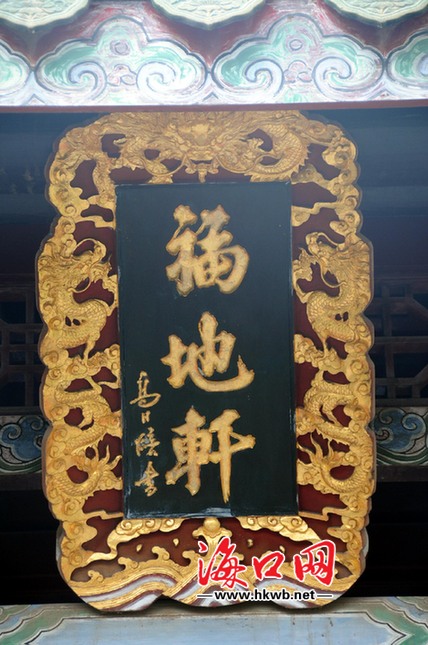 福地軒
海口网
www.hkwb.net